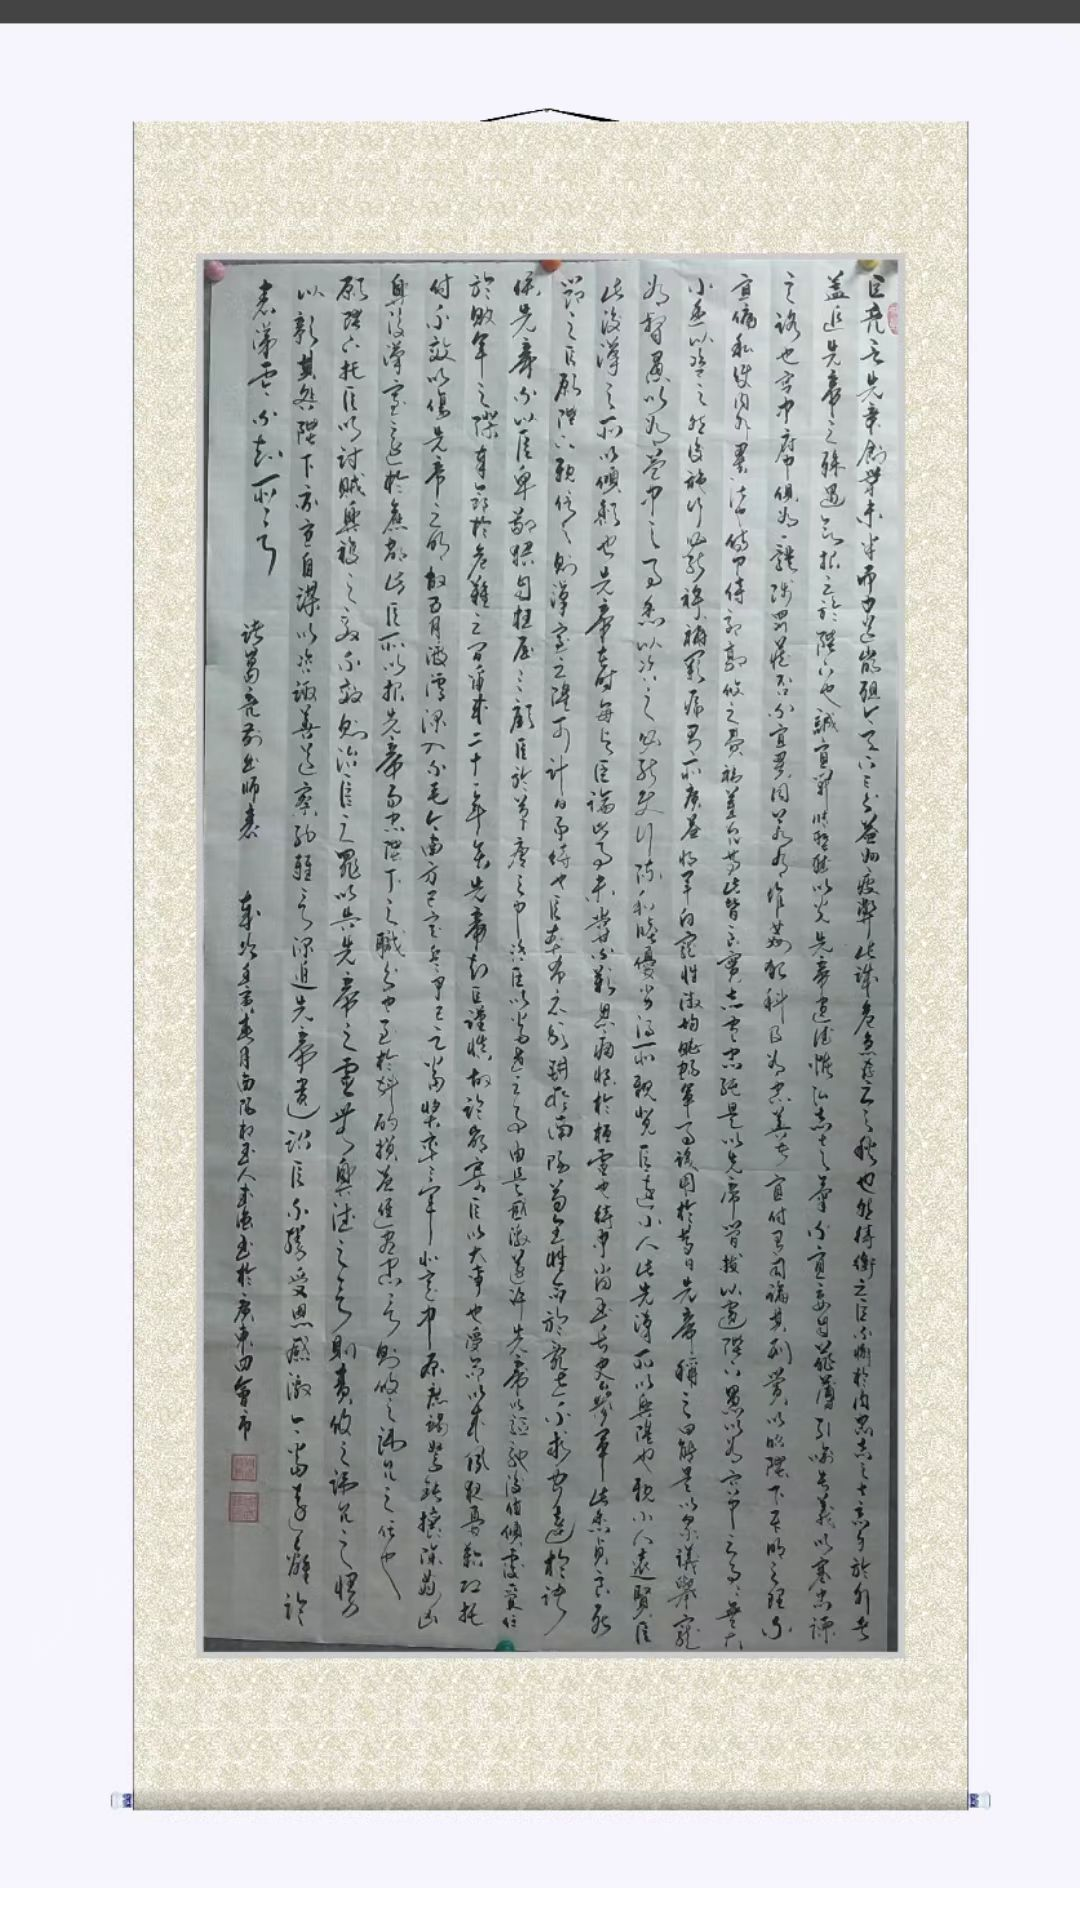 臣亮言先帝創業未半而中道崩殂今天下三分益州疲弊此誠危急存亡之秋也然侍衛之臣不懈於內忠志之士忘身於外者
蓋追先帝之殊遇欲報之於陛下也誠宜開張聖聽以光先帝遺德恢弘志士之氣不宜妄自菲薄引喻失義以塞忠諫
之路也宮中府中俱為一體陟罰臧否不宜異同若有作姦犯科及為忠善者宜付有司論其刑賞以昭陛下平明之理不
宜偏私使內外異法也侍中侍郎郭攸之費禕董允等此皆良實志慮忠純是以先帝簡拔以遺陛下愚以為宮中之事事無大
小悉以咨之然後施行必能裨補闕漏有所廣益將軍向寵性淑均曉暢軍事試用於昔日先帝稱之曰能是以眾議舉寵
為督愚以為營中之事悉以咨之必能使行陣和睦優劣得所親賢臣遠小人此先漢所以興隆也親小人遠賢臣
此後漢之所以傾頹也先帝在時每與臣論此事未嘗不歎息痛恨於桓靈也侍中尚書長史參軍此悉貞良死
節之臣願陛下親之信之則漢室之隆可計日而待也臣本布衣躬耕於南陽苟全性命於亂世不求聞達於諸
侯先帝不以臣卑鄙猥自枉屈三顧臣於草廬之中咨臣以當世之事由是感激遂許先帝以驅馳後值傾覆受任
於敗軍之際奉命於危難之間爾來二十一年矣先帝知臣謹慎故臨崩寄臣以大事也受命以來夙夜憂歎恐託
付不效以傷先帝之明故五月渡瀘深入不毛今南方已定兵甲已足當獎率三軍北定中原庶竭駑鈍攘除姦凶
興復漢室還於舊都此臣所以報先帝而忠陛下之職分也至於斟酌損益進盡忠言則攸之禕允之任也
願陛下托臣以討賊興復之效不效則治臣之罪以告先帝之靈若無興德之言則責攸之禕允之慢
以彰其咎陛下亦宜自謀以咨諏善道察納雅言深追先帝遺詔臣不勝受恩感激今當遠離臨
表涕零不知所言
諸葛亮前出師表
歲次
春月南陽
人
書於廣東四會市